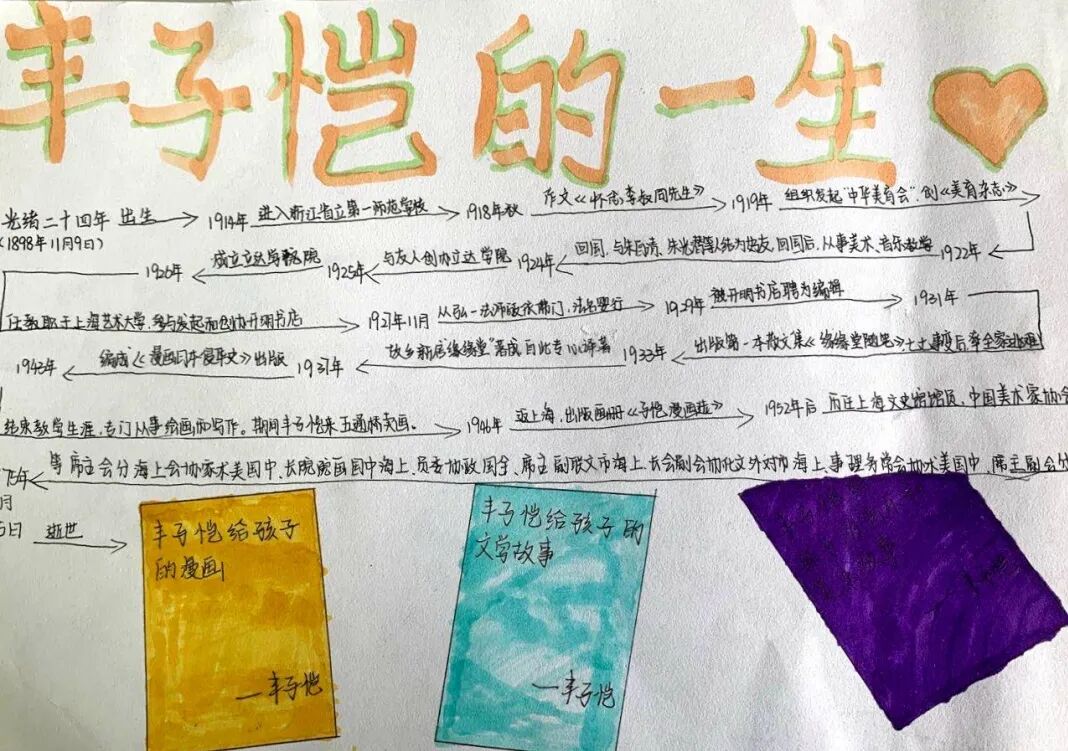 丰子恺的一生
光绪二十四年 出生
(1898年11月9日)
1914年 进入浙江省立第一师范学校
1918年秋 作文《怀念李叔同先生》
1919年 组织发起"中华美育会",创《美育杂志》
1922年 回国,与朱自清、朱光潜等人结为挚友,回国后,从事美术、音乐教学
1924年 与友人创办立达学院
1925年 成立立达学院
1926年
任教职于上海艺术大学,参与发起和创办开明书店
1927年11月 从弘一法师皈依佛门,法名婴行
1929年 被开明书店聘为编辑
1931年
出版第一本散文集《缘缘堂随笔》七七事变后率全家
1933年 故乡新居缘缘堂"落成自此专心译著"
1937年 编成《漫画日本侵华史》出版
1943年
结束教学生涯,专门从事绘画和写作。期间丰子恺来五通桥卖画。
1946年 返上海,出版画册《子恺漫画选》
1952年后 历任上海文史馆馆员,中国美术家协会
分会副主席、中国美术协会常务理事、上海市对外文化协会副会长、上海市文联副主席、全国政协委员、上海中国画院院长、中国美术家协会上海分会主席等
75年
月
5日 逝世
丰子恺给孩子
的漫画
—丰子恺
丰子恺给孩子的
文学故事
—丰子恺